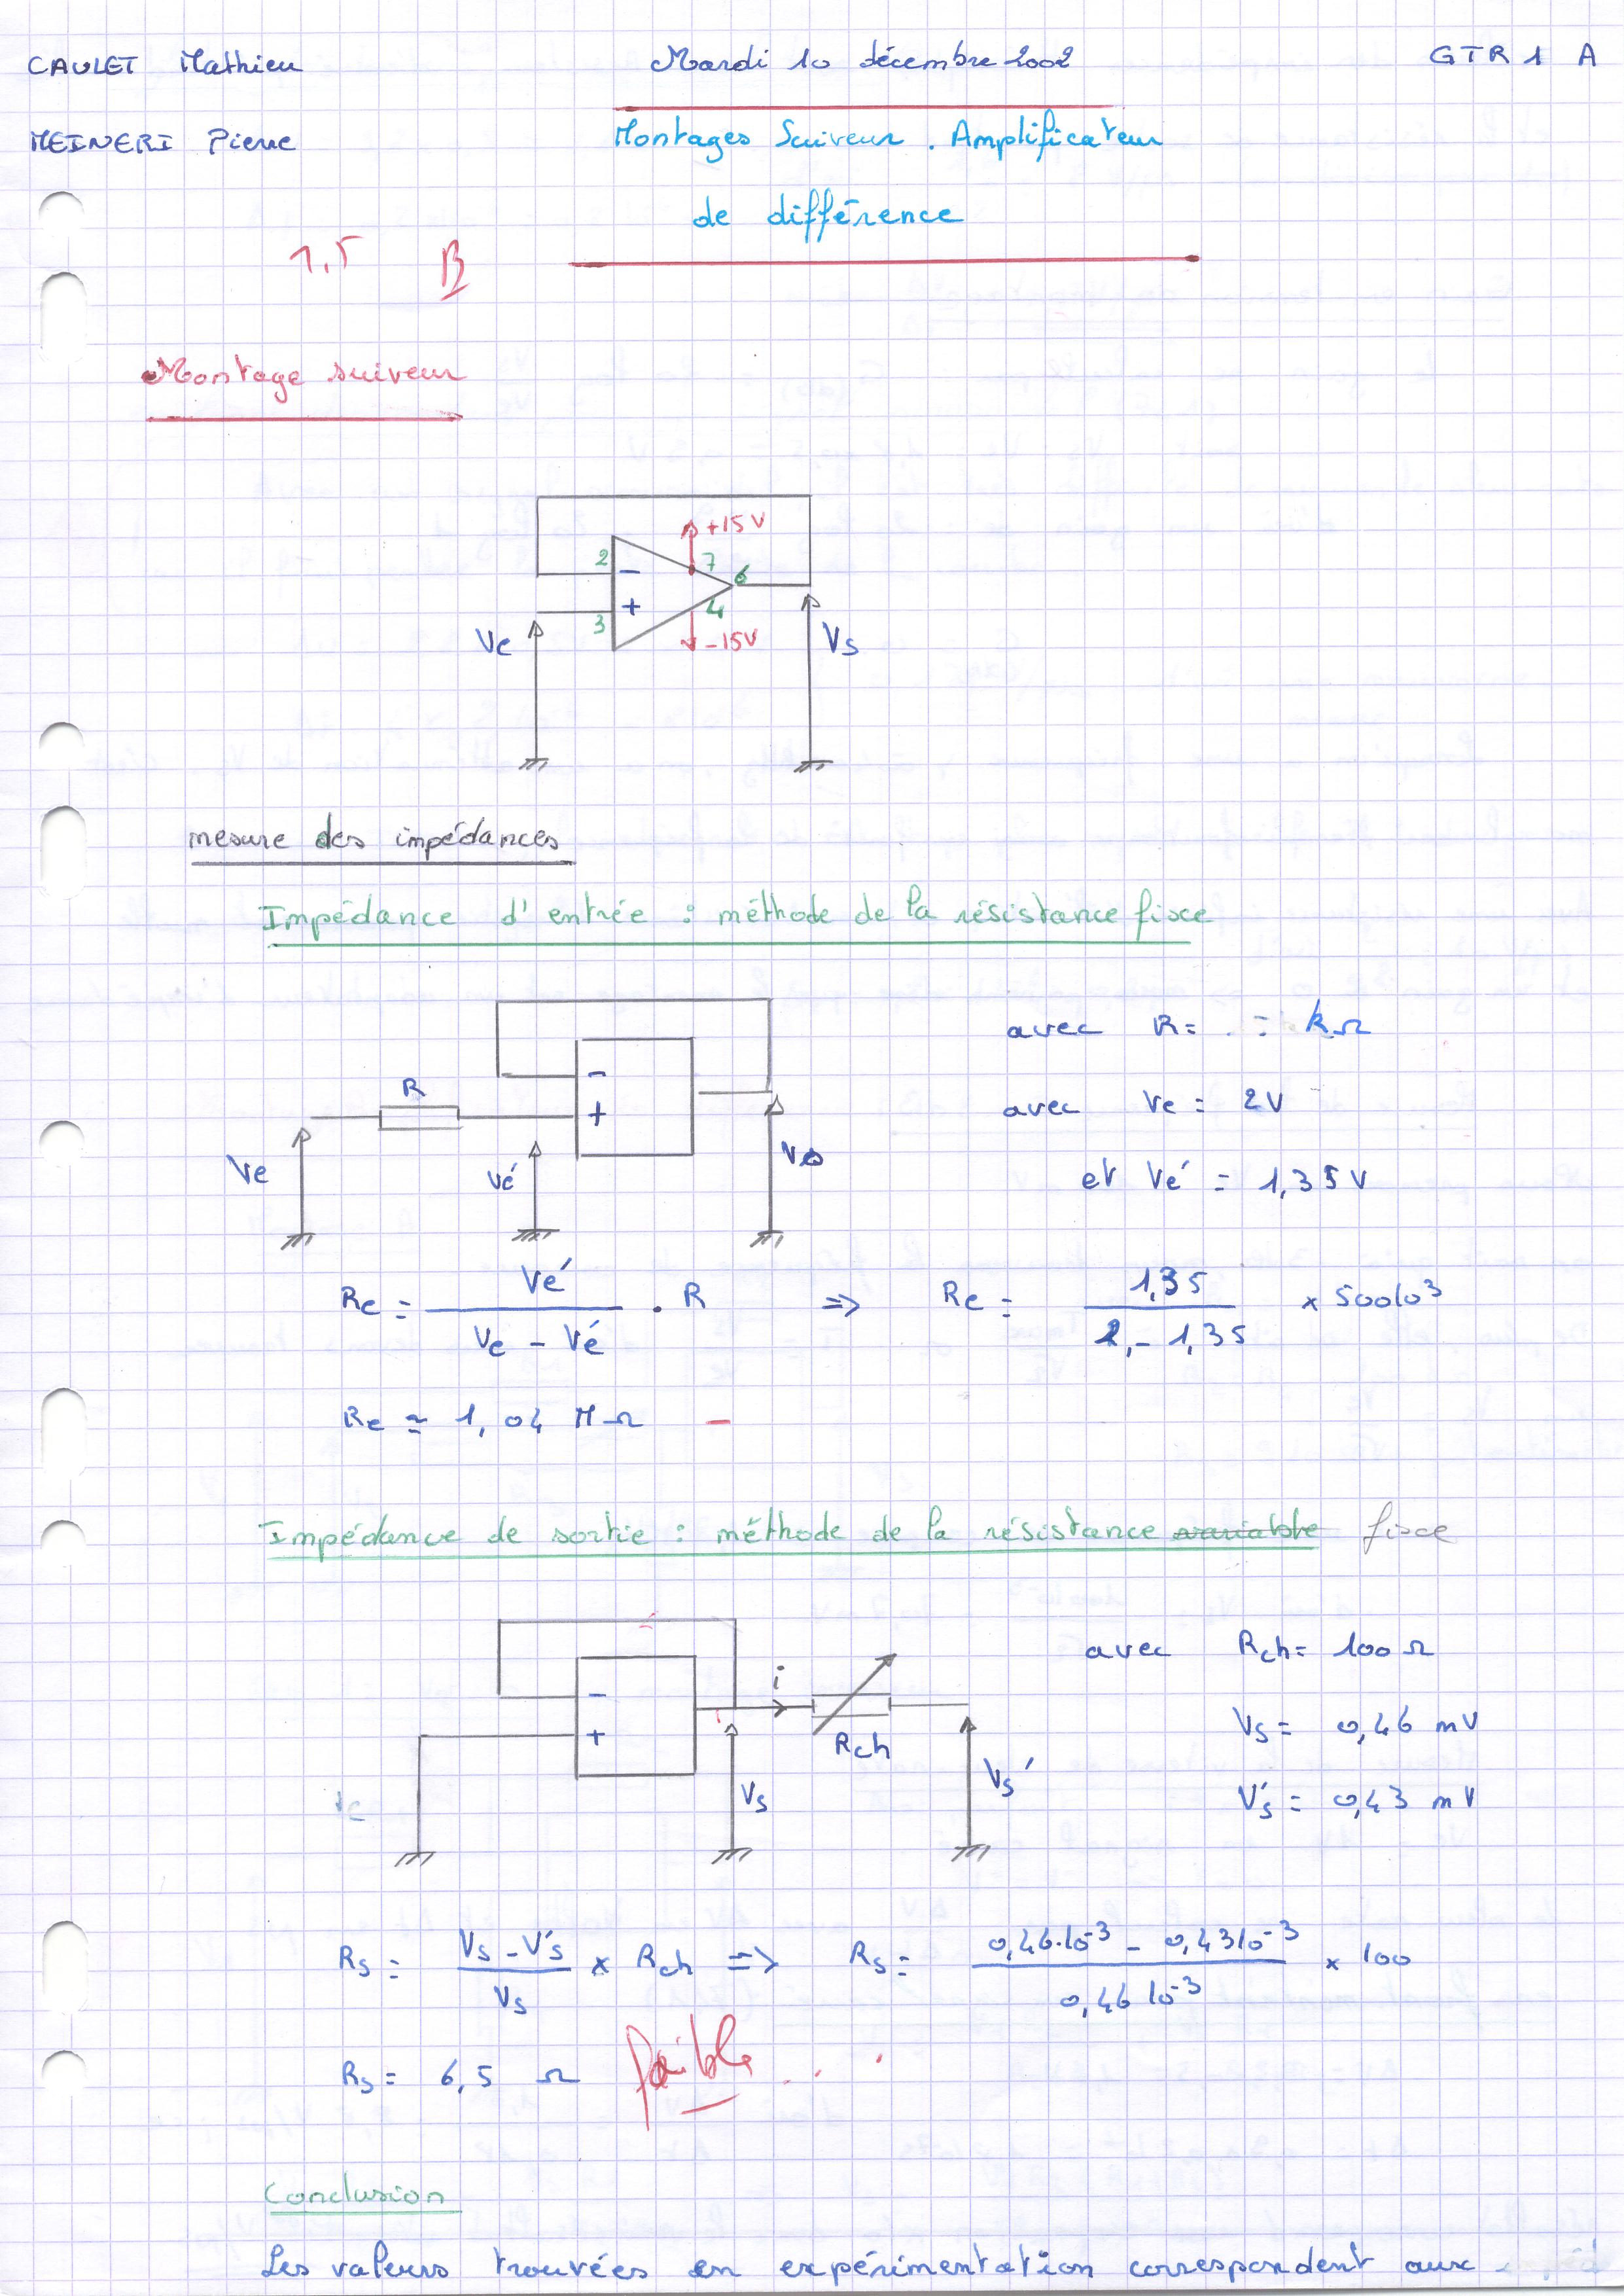 CAULET Mathieu
Mardi 10 décembre 2002
GTR 1 A
MEINERI Pierre
Montages Suiveur . Amplificateur
de différence
1,5 B
Montage suiveur
+15V
2
7
-
6
+
4
3
-15V
Ve
Vs
mesure des impédances
Impédance d'entrée : méthode de la résistance fixe
avec R= kΩ
-
R
+
avec Ve = 2V
Ve
Ve'
Vs
et Ve' = 1,35V
Re = Ve' / (Ve - Ve') . R => Re = 1,35 / (2,- 1,35) × 500 10³
Re ≃ 1,04 MΩ -
Impédance de sortie : méthode de la résistance variable fixe
avec Rch = 100Ω
i
-
+
Rch
Vs = 0,46 mV
Ve
Vs
Vs'
V's = 0,43 mV
Rs = (Vs - V's) / Vs × Rch => Rs = (0,46.10⁻³ - 0,43 10⁻³) / 0,46 10⁻³ × 100
Rs = 6,5 Ω faible . .
Conclusion
Les valeurs trouvées en expérimentation correspondent aux